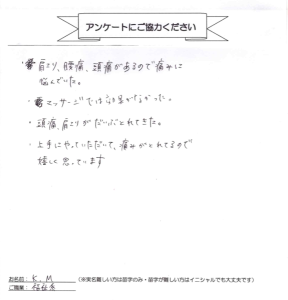 アンケートにご協力ください
・肩こり、腰痛、頭痛があるので痛みに
悩んでいた。
・マッサージでは効果がなかった。
・頭痛、肩こりがだいぶとれてきた。
・上手にやっていただいて、痛みがとれてるので
嬉しく思っています
お名前: K.M (※実名難しい方は苗字のみ・苗字が難しい方はイニシャルでも大丈夫です)
ご職業: